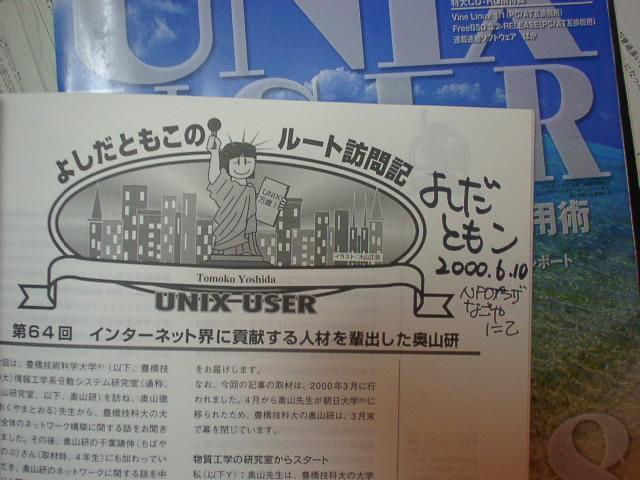 UNIX
USER
特大CD-ROM付録
Vine Linux 1.1 (PC/AT互換機用)
FreeBSD 3.2-RELEASE(PC/AT互換機用)
連載連動ソフトウェア ほか
用術
ポート
&
よしだともこの ルート訪問記
UNIX
万歳!
イラスト:大山正弥
Tomoko Yoshida
UNIX USER
よしだ
ともこ
2000.6.10
なごや
にて
第64回 インターネット界に貢献する人材を輩出した奥山研
回は、豊橋技術科学大学(以下、豊橋技
大)情報工学系分散システム研究室(通称、
山研究室、以下、奥山研)を訪ね、奥山徹
おくやまとおる)先生から、豊橋技科大の大
全体のネットワーク構築に関する話をお聞き
ました。その後、奥山研の千葉靖伸(ちばや
のぶ)さん(取材時、4年生)にも加わってい
だき、奥山研のネットワークに関する話を中
をお届けします。
なお、今回の記事の取材は、2000年3月に行
われました。4月から奥山先生が朝日大学に
移られたため、豊橋技科大の奥山研は、3月末
で幕を閉じています。
物質工学の研究室からスタート
私(以下Y):奥山先生は、豊橋技科大の大学